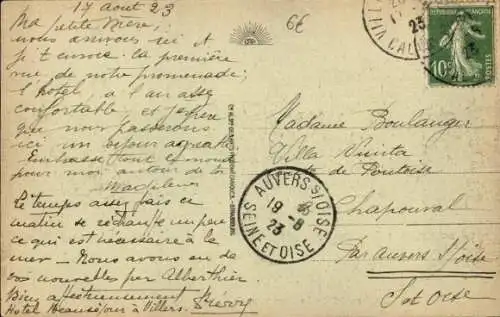 17 août 23
Ma petite Mère,
nous arrivons ici et
je t'envoie la première
vue de notre promenade;
l'hôtel a l'air assez
confortable et j'espère
que nous passerons
ici un séjour agréable
Embrasse tout le monde
pour moi autour de toi
Madeleine
Le temps assez frais ce
matin se réchauffe un peu
ce qui est nécessaire à la
mer - Nous avons eu de
vos nouvelles par Alberthier
Bien affectueusement
Hotel Beauséjour à Villers. Pierre
6€
Madame Boulanger
Villa Ninita
de Pontoise
Chaponval
Par Auvers s/Oise
S et Oise
AUVERS S/OISE
19 -8
23
SEINE ET OISE
VILL
CAL
23
FRANÇAISE
10c
POSTES